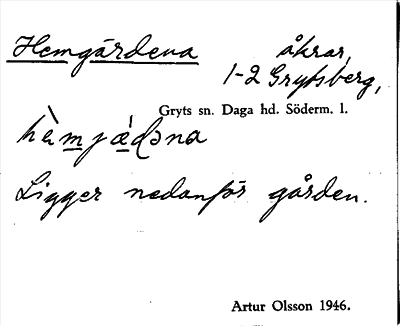 Hemgärdena åkrar,
1-2 Grytsberg,
Gryts sn. Daga hd. Söderm. l.
Ligger nedanför gården.
Artur Olsson 1946.